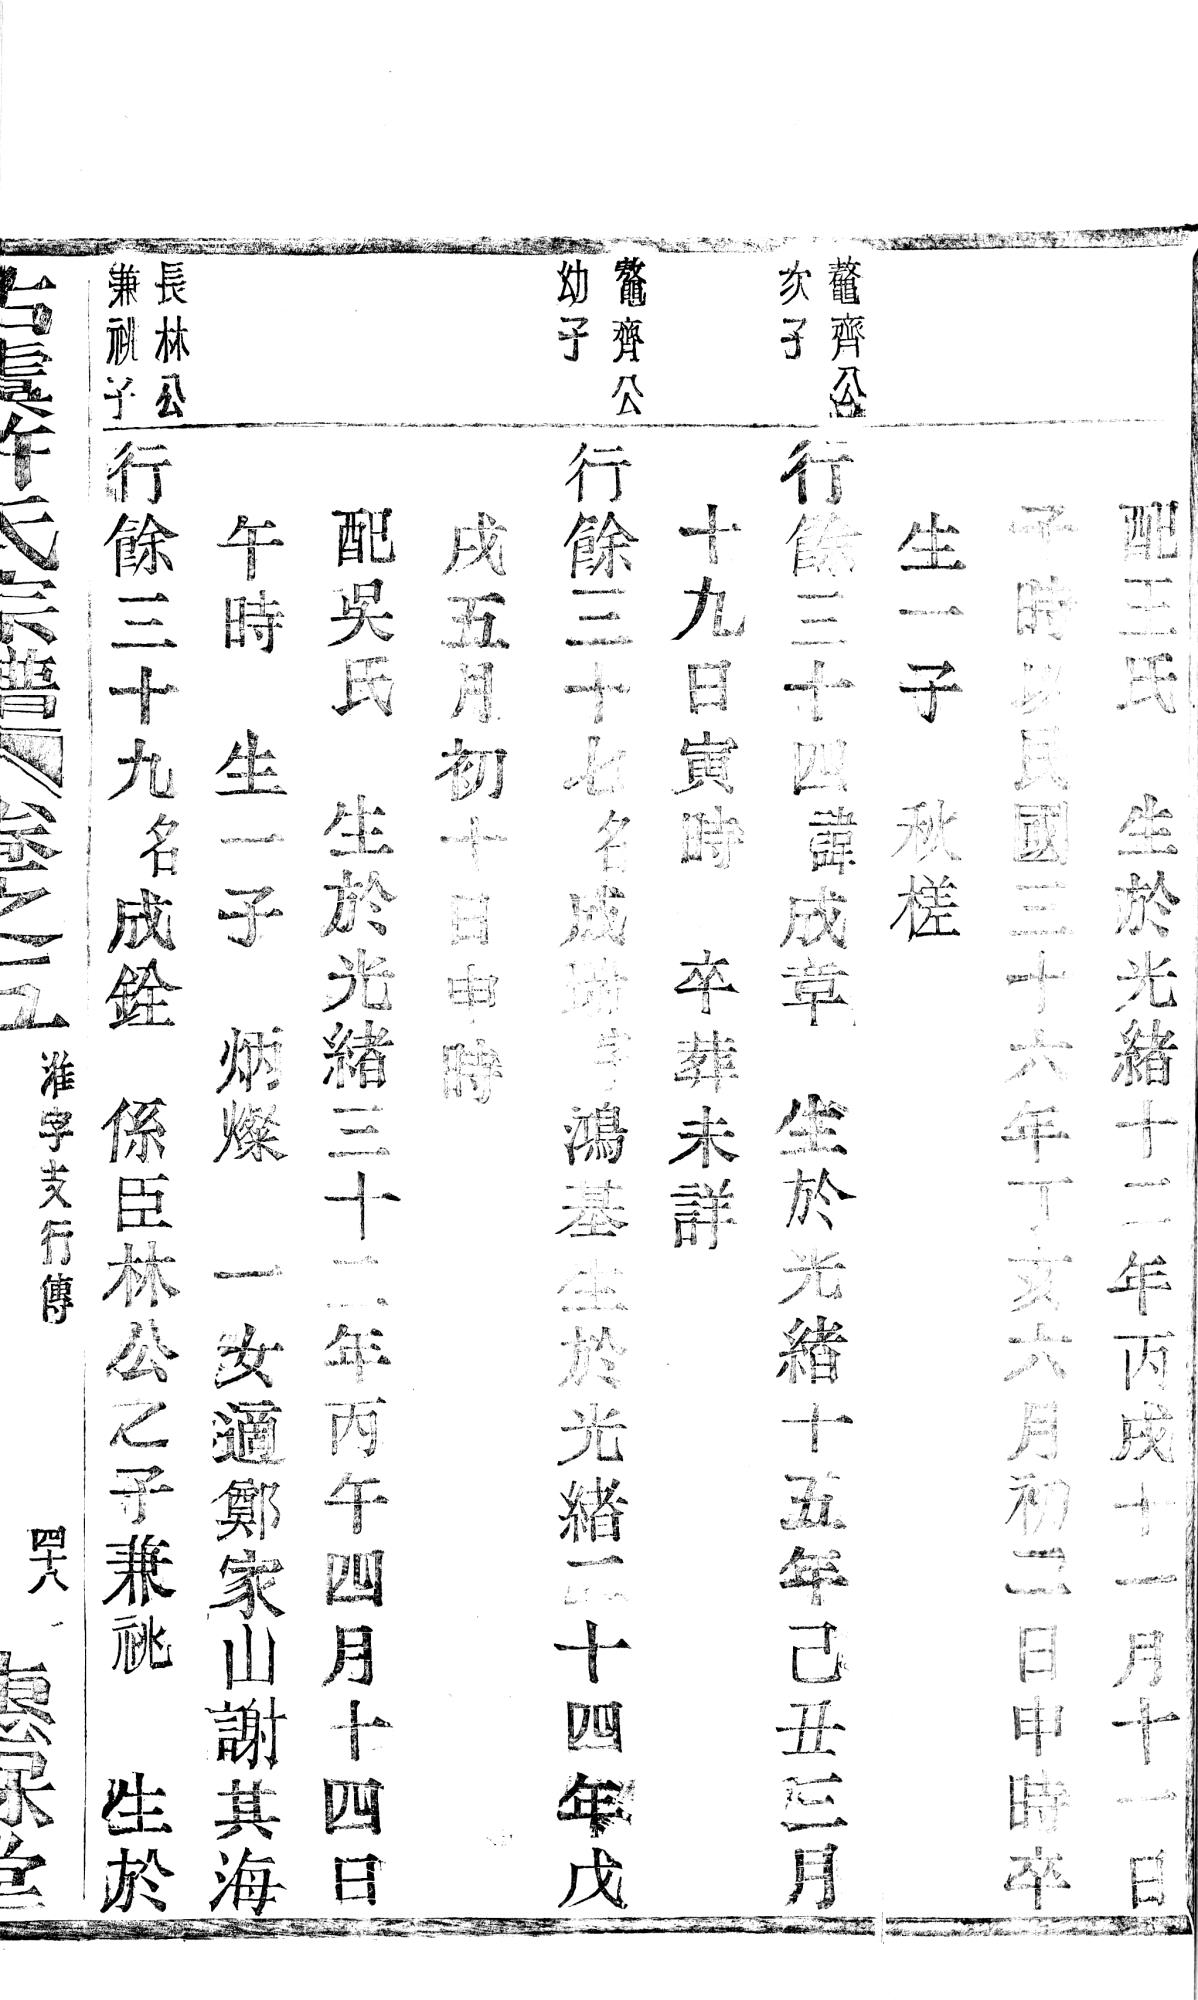 配王氏　生於光緒十二年丙戌十一月十一日
子時　民國三十六年丁亥六月初二日申時卒
生一子　秋槎
鼇齊公
次子
行餘三十四諱成章　生於光緒十五年己丑三月
十九日寅時　卒葬未詳
鼇齊公
幼子
行餘三十七名成　字鴻基生於光緒二十四年戊
戌五月初十日申時
配吳氏　生於光緒三十二年丙午四月十四日
午時　生一子　炳燦　一女適鄭家山謝其海
長林公
兼祧子
行餘三十九名成銓　係臣林公之子兼祧　生於
古虞許氏宗譜　卷之五　淮字支行傳　四十八　惠保堂